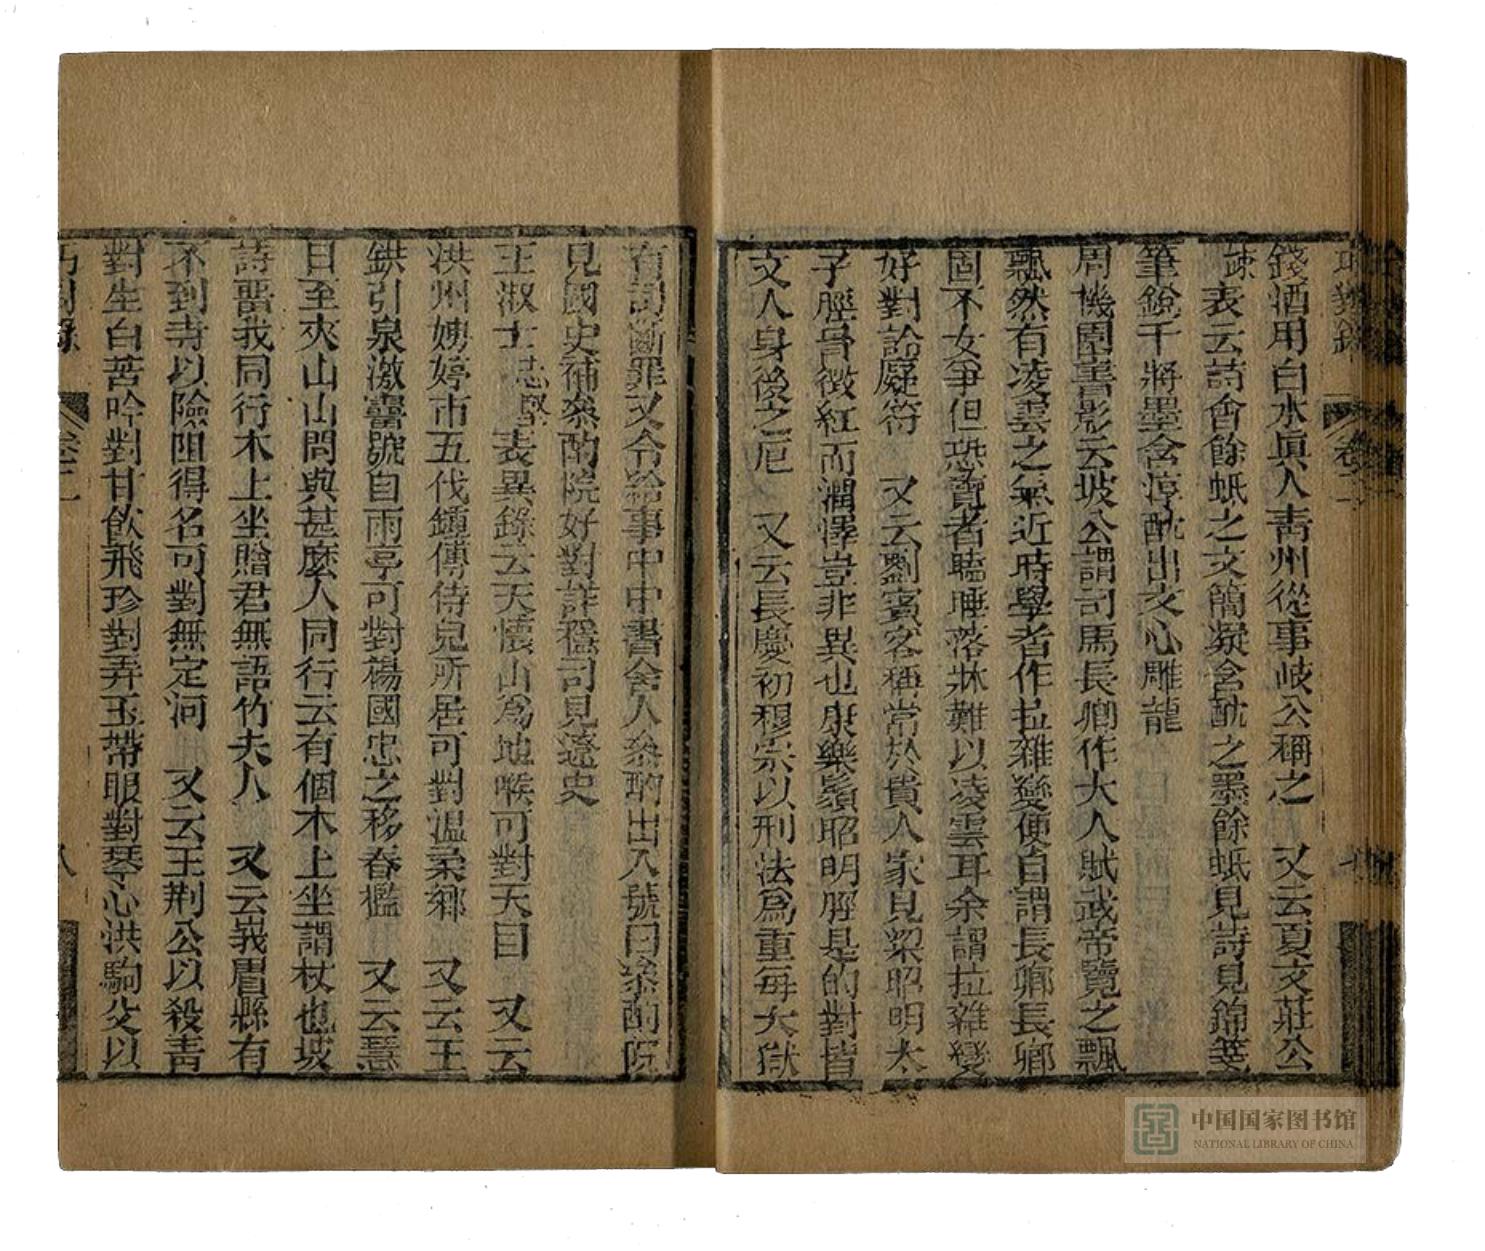 巧對錄
卷二
七
錢酒用白水眞人靑州從事岐公稱之 又云夏文莊公
竦表云詩會餘蚔之文簡凝含酖之墨餘蚔見詩見錦箋
筆銳干將墨含淳酖出文心雕龍
周櫟園書影云坡公謂司馬長卿作大人賦武帝覽之飄
飄然有凌雲之氣近時學者作拉雜變便自謂長卿長卿
固不女爭但恐覽者瞌睡落牀難以凌雲耳余謂拉雜變
好對詅癡符 又云劉賓客稱常於貴人家見梁昭明太
子脛骨微紅而潤澤豈非異也康樂鬚昭明脛是的對皆
文人身後之厄 又云長慶初穆宗以刑法爲重每大獄
有司斷罪又令給事中中書舍人叅酌出入號曰叅酌院
見國史補叅酌院好對詳穩司見遼史
王淑士志堅表異錄云天懷山爲地喉可對天曰 又云
洪州娉婷市五代鍾傳侍兒所居可對溫柔鄉 又云王
鉷引泉激霤號自雨亭可對楊國忠之移春檻 又云慧
日至夾山山問與甚麽人同行云有個木上坐謂杖也坡
詩嘗我同行木上坐贈君無語竹夫人 又云峩眉縣有
不到寺以險阻得名可對無定河 又云王荆公以殺靑
對生白苦吟對甘飮飛珍對弄玉帶眼對琴心洪駒父以
巧對錄
卷二
八
中国国家图书馆
NATIONAL LIBRARY OF CHINA